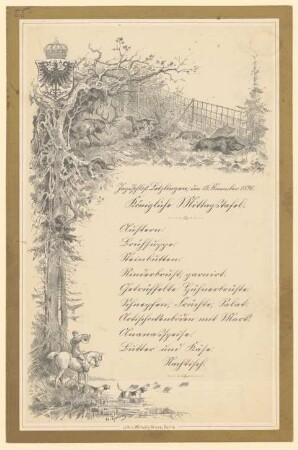 Jagdschloß Letzlingen, den 18. November 1890.
Königliche Mittagstafel.
Austern.
Steinbutten.
Rinderbrust, garnirt.
Getrüffelte Hühnerbrüste.
Schnepfen, Früchte, Salat.
Artischockenböden mit Mark.
Ananasspeise.
Butter und Käse.
Nachtisch.